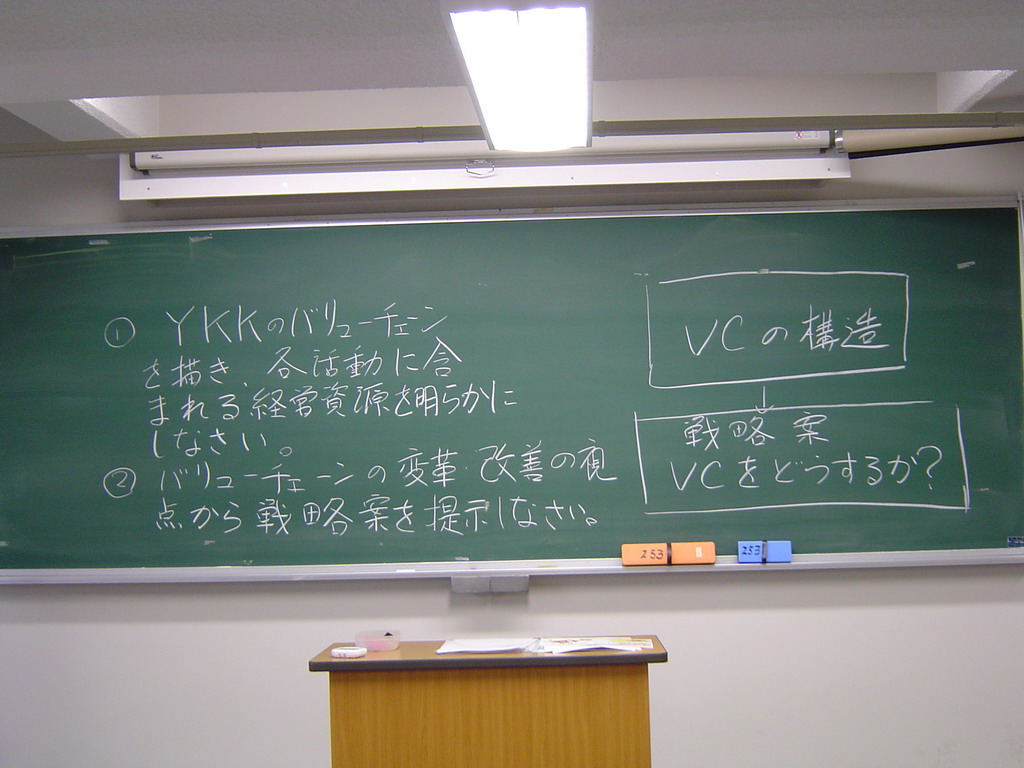 ① YKKのバリューチェーン
を描き、各活動に含
まれる経営資源を明らかに
しなさい。
② バリューチェーンの変革・改善の視
点から戦略案を提示しなさい。
VCの構造
↓
戦略案
VCをどうするか?
253
253